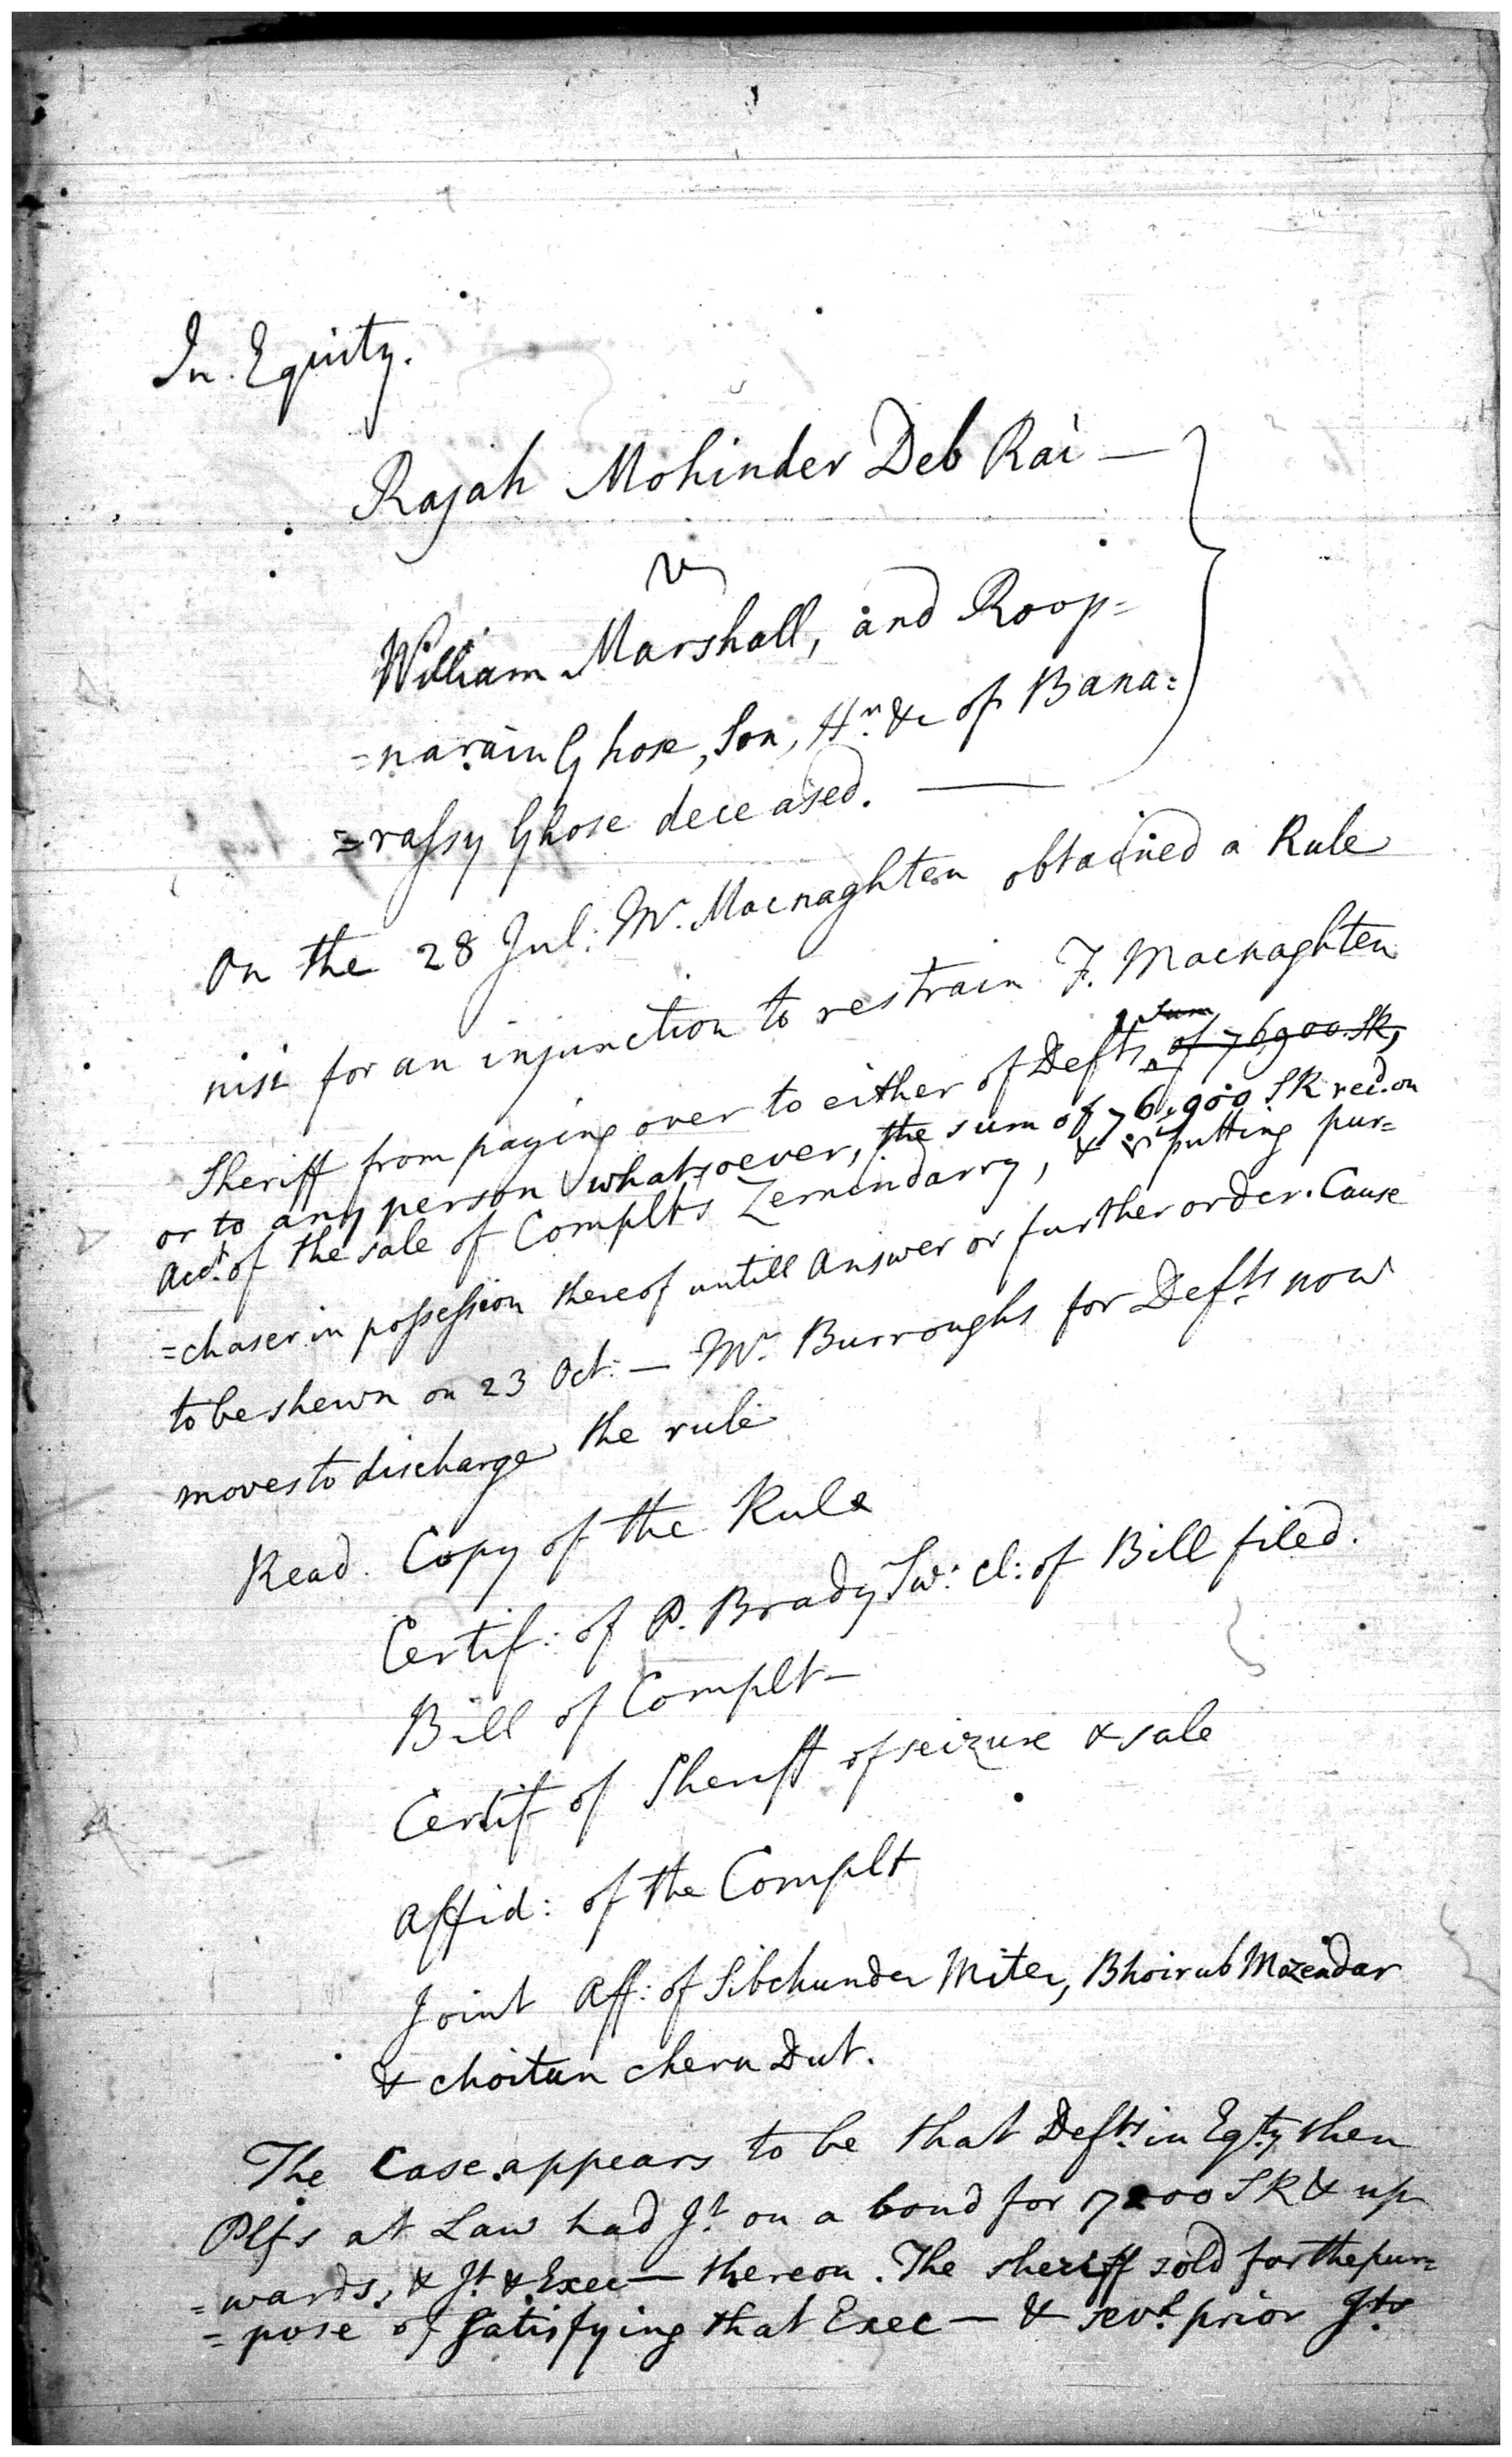 In Equity.
Rajah Mohinder Deb Rai —
v
William Marshall, and Roop=
=narain Ghose, Son, Hr. &c of Bana=
=rassy Ghose deceased. —
On the 28 Jul: Mr. Macnaghten obtained a Rule
nisi for an injunction to restrain F. Macnaghten
Sheriff from paying over to either of Defts sum of 76900 SR,
or to any person whatsoever, the sum of 76,900 SR recd. on
Acct. of the sale of Complts Zemindarry, & putting pur=
=chaser in possession thereof untill Answer or further order. Cause
to be shewn on 23 Oct: — Mr. Burroughs for Defts now
moves to discharge the rule
Read. Copy of the Rule
Certif: of P. Brady Sw: Cl: of Bill filed.
Bill of Complt —
Certif of Sheriff of seizure & sale
Affid: of the Complt
Joint Aff: of Sibchunder Miter, Bhoirub Mozendar
& Choitun Chern Dut.
The Case appears to be that Defts. in Eqty then
Plfs at Law had Jt. on a bond for 7200 SR & up
=wards, & Jt. & Exec — thereon. The sheriff sold for the pur=
=pose of satisfying that Exec — & sevl. prior Jts